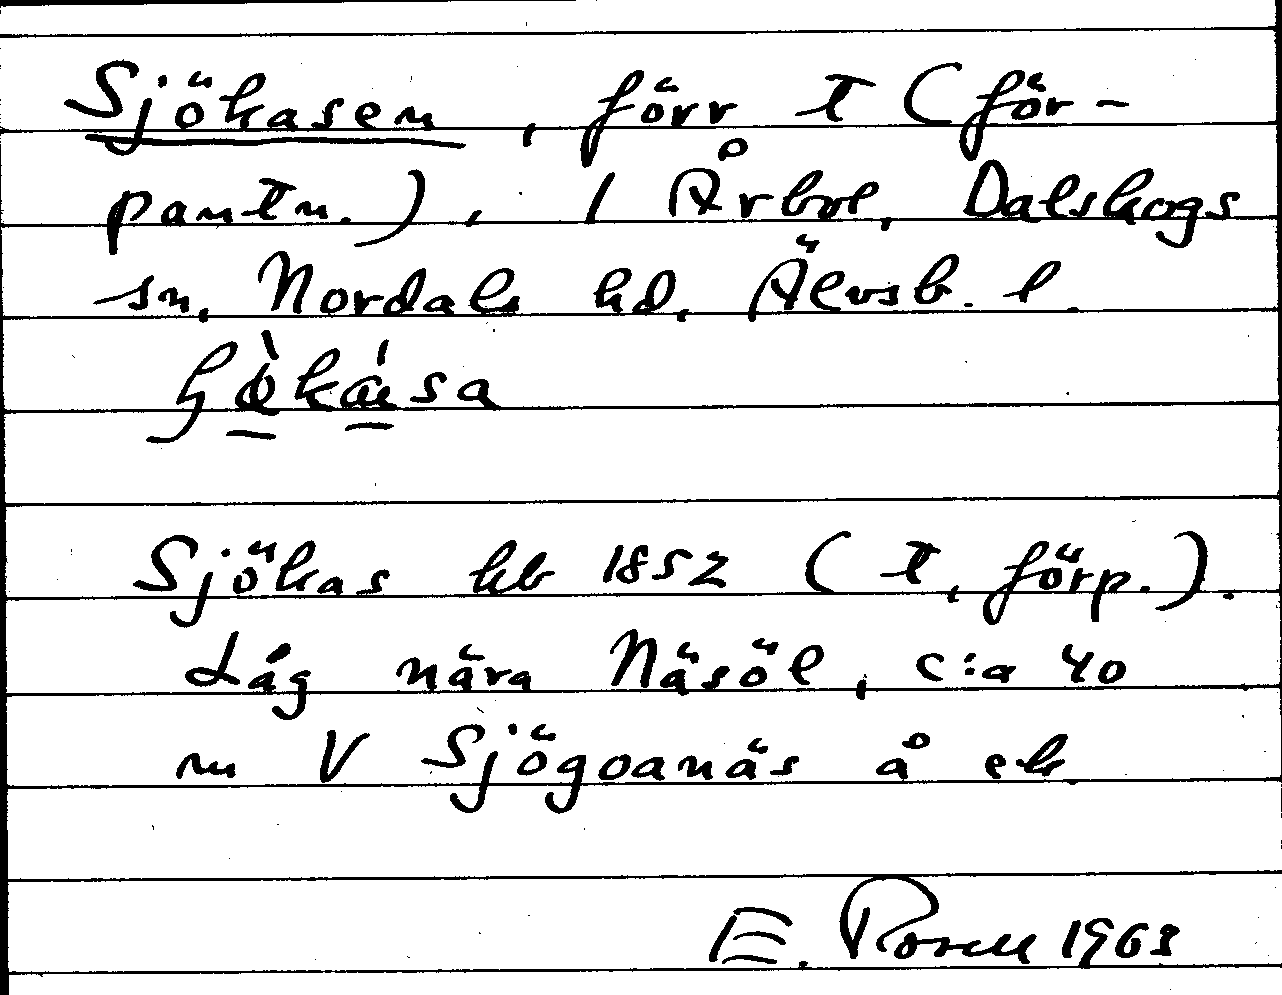 Sjökasen, förr t (för-
pantn.), 1 Årbol, Dalskogs
sn, Nordals hd, Älvsb. l.
Sjökas kb 1852 (t, förp.).
Låg nära Näsöl, c:a 40
m V Sjögoanäs å ek
E. Rosell 1963